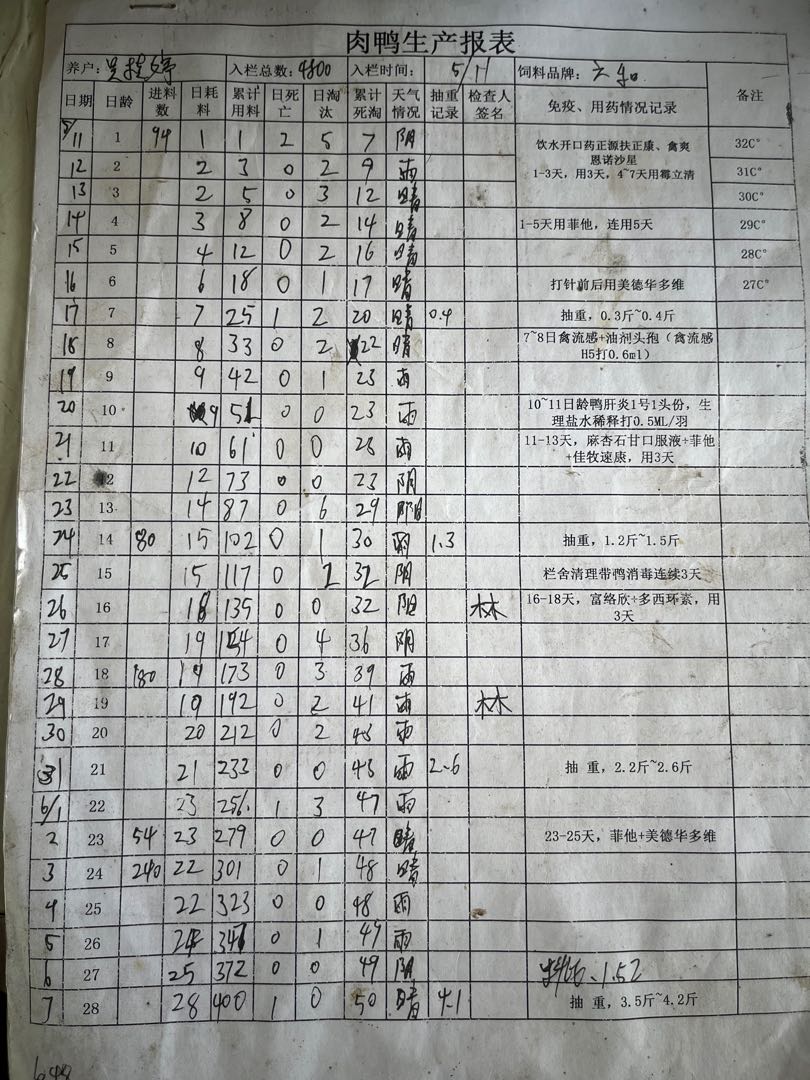 肉鸭生产报表
养户: 入栏总数: 4800 入栏时间: 5/11 饲料品牌:
日期 日龄 进料数 日耗料 累计用料 日死亡 日淘汰 累计死淘 天气情况 抽重记录 检查人签名 免疫、用药情况记录 备注
5/11 1 94 1 1 2 5 7 阴 饮水开口药正源扶正康、禽爽恩诺沙星 1-3天，用3天，4~7天用霉立清 32C°
12 2 2 3 0 2 9 雨 31C°
13 3 2 5 0 3 12 晴 30C°
14 4 3 8 0 2 14 晴 1-5天用菲他，连用5天 29C°
15 5 4 12 0 2 16 晴 28C°
16 6 6 18 0 1 17 晴 打针前后用美德华多维 27C°
17 7 7 25 1 2 20 晴 0.4 抽重，0.3斤~0.4斤
18 8 8 33 0 2 22 晴 7~8日禽流感+油剂头孢（禽流感H5打0.6ml）
19 9 9 42 0 1 23 雨
20 10 9 51 0 0 23 雨 10~11日龄鸭肝炎1号1头份，生理盐水稀释打0.5ML/羽
21 11 10 61 0 0 23 雨 11-13天，麻杏石甘口服液+菲他+佳牧速康，用3天
22 12 12 73 0 0 23 阴
23 13 14 87 0 6 29 阴
24 14 80 15 102 0 1 30 雨 1.3 抽重，1.2斤~1.5斤
25 15 15 117 0 2 32 阴 栏舍清理带鸭消毒连续3天
26 16 18 135 0 0 32 阴 林 16-18天，富络欣+多西环素，用3天
27 17 19 154 0 4 36 阴
28 18 180 19 173 0 3 39 雨
29 19 19 192 0 2 41 雨 林
30 20 20 212 0 2 43 雨
31 21 21 233 0 0 43 雨 2.6 抽 重，2.2斤~2.6斤
6/1 22 23 256 1 3 47 雨
2 23 54 23 279 0 0 47 晴 23-25天，菲他+美德华多维
3 24 240 22 301 0 1 48 晴
4 25 22 323 0 0 48 雨
5 26 24 347 0 1 49 雨
6 27 25 372 0 0 49 阴 1.52
7 28 28 400 1 0 50 晴 4.1 抽 重，3.5斤~4.2斤